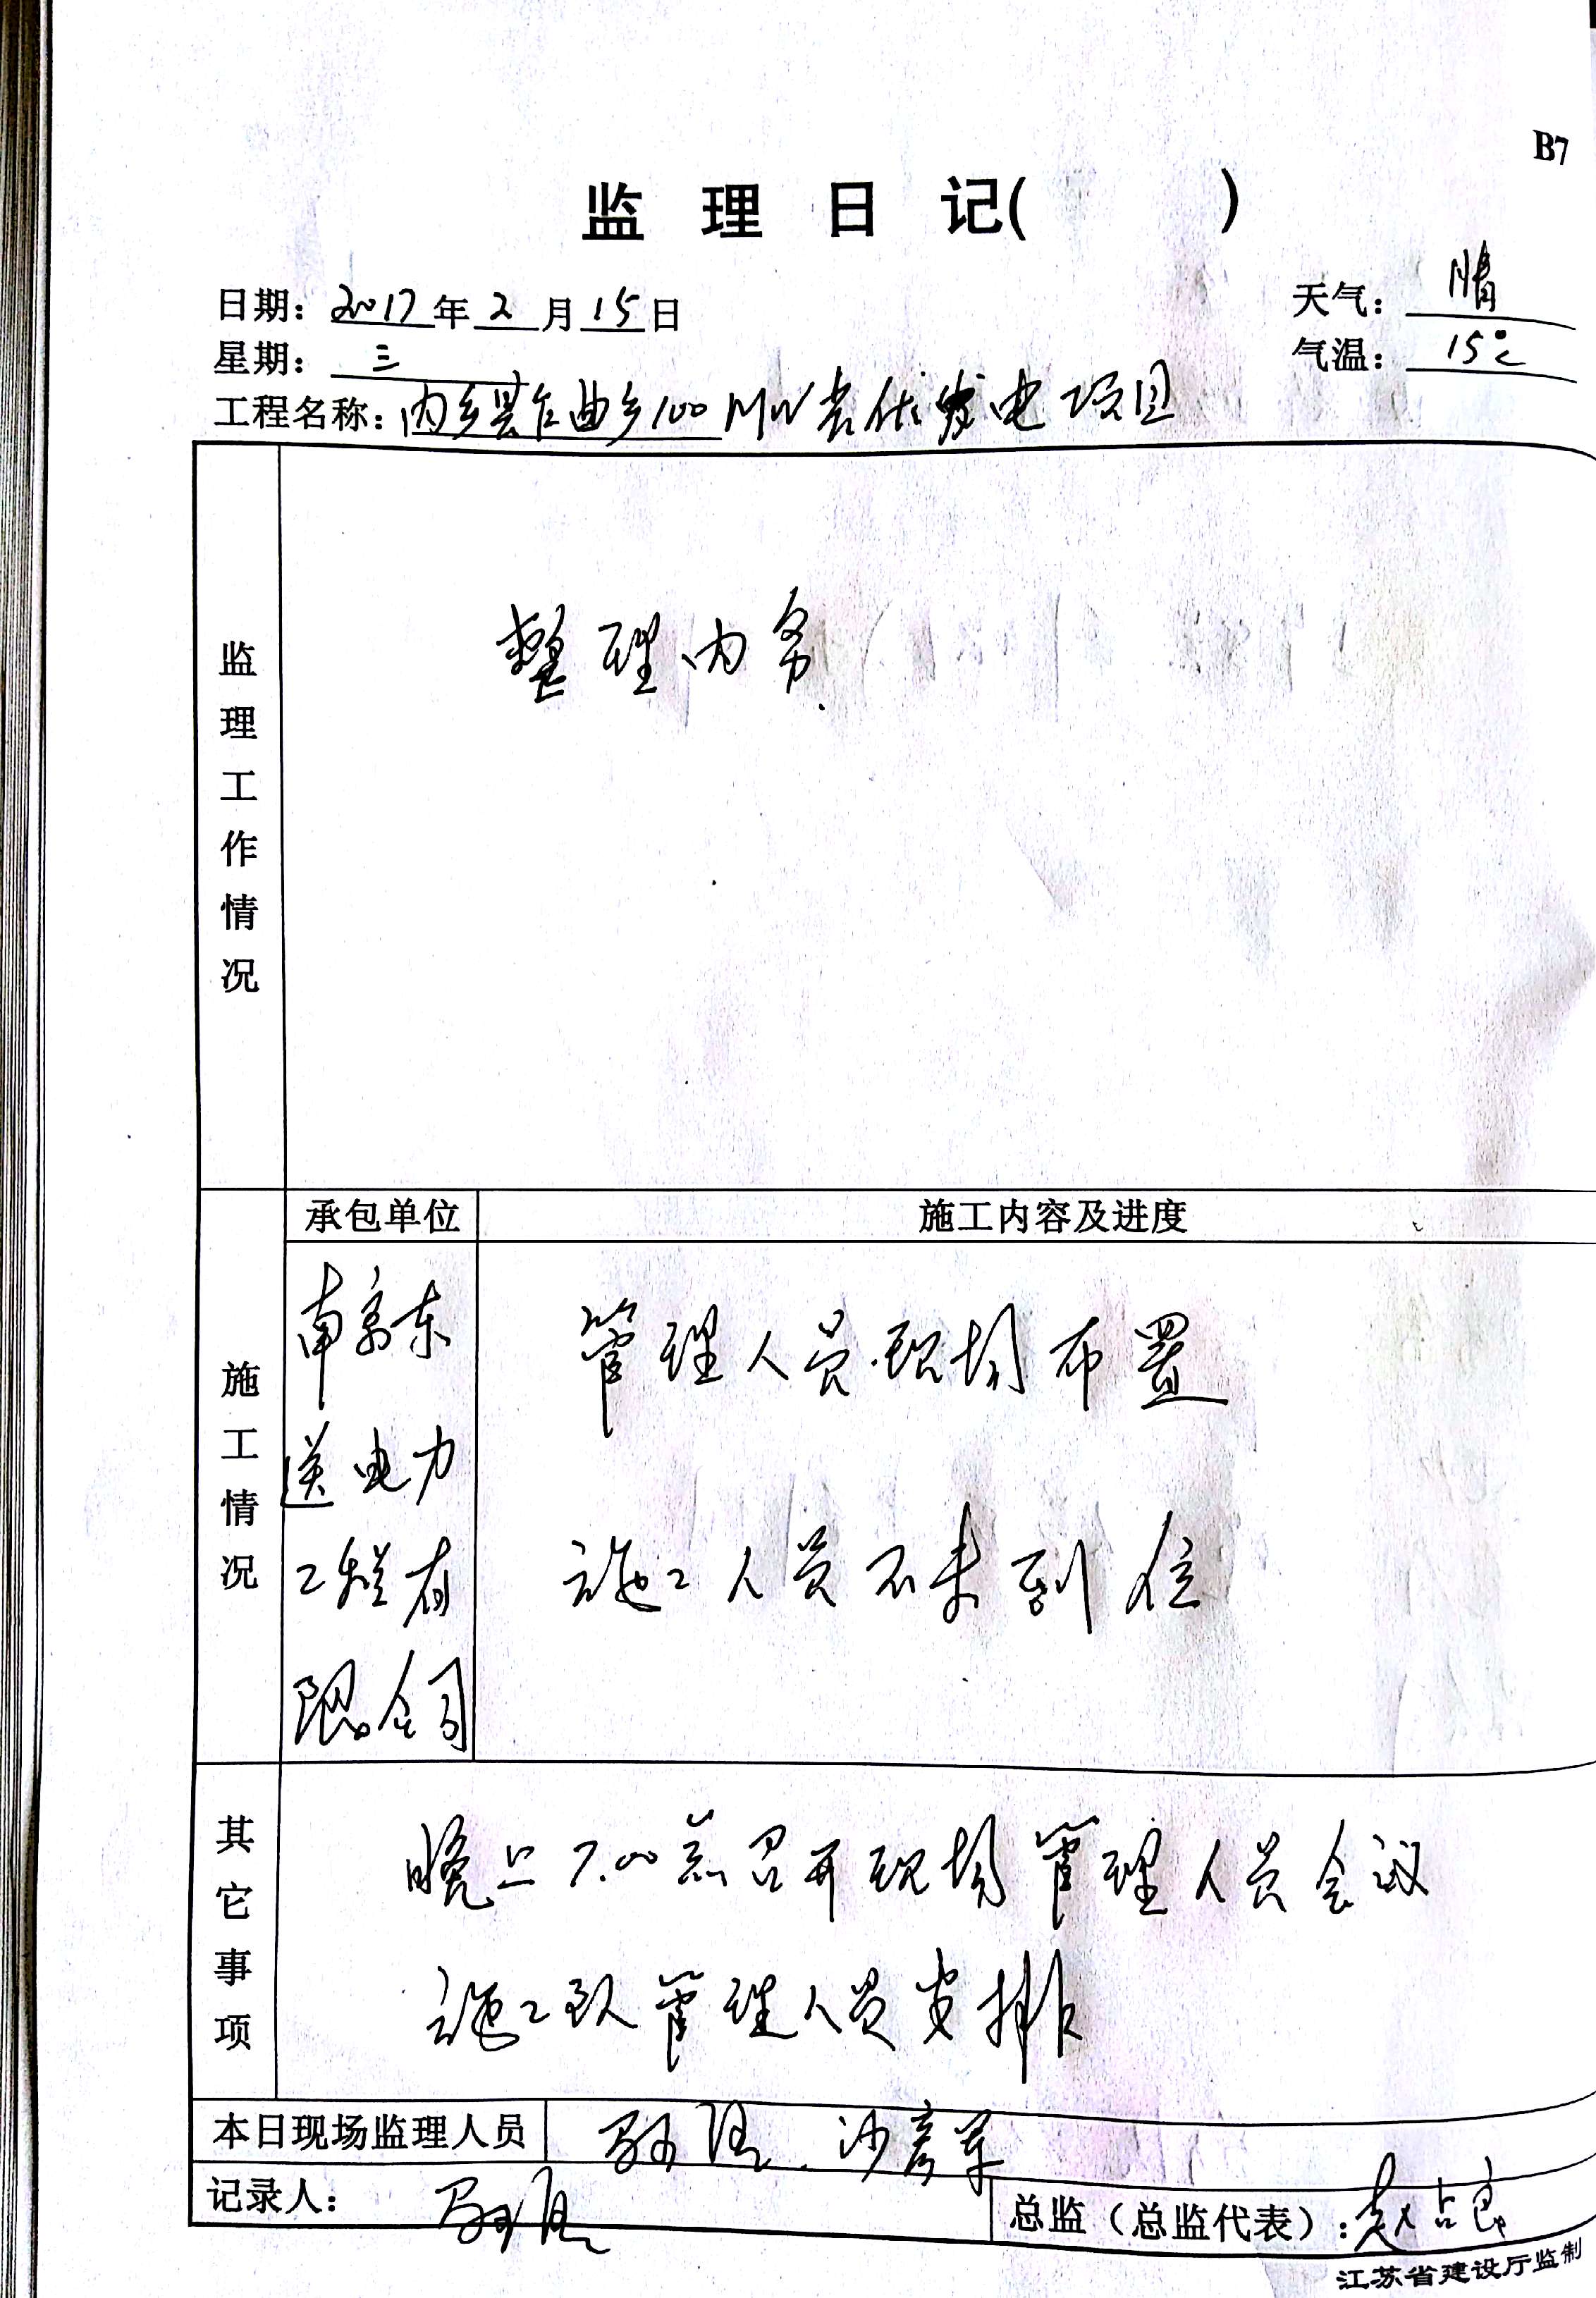 B7
监 理 日 记( )
日期: 2017 年 2 月 15 日
天气: 晴
星期: 三
气温: 15℃
工程名称: 内乡县乍曲乡100MW光伏发电项目
监理工作情况
整理内务.
施工情况
承包单位
施工内容及进度
南京东
送电力
工程有
限公司
管理人员.现场布置
施工人员不未到位
其它事项
晚上7.00点召开现场管理人员会议
施工队管理人员安排
本日现场监理人员
沙彦军
记录人:
总监（总监代表）: 赵占良
江苏省建设厅监制